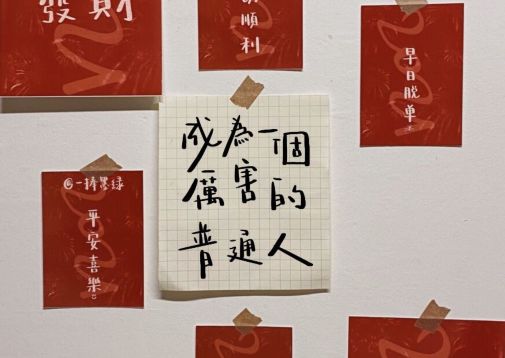 發財
順利
早日脱單
成為一個
厲害的
普通人
@一捧墨緑
平安喜樂